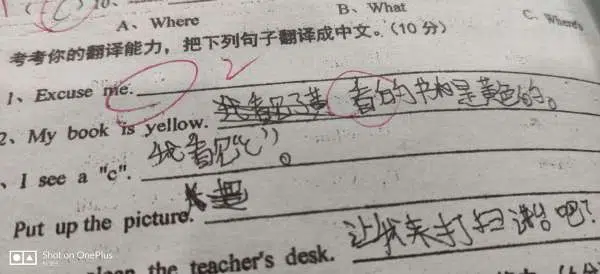 A、Where B、What C、Where's
考考你的翻译能力，把下列句子翻译成中文。（10分）
1、Excuse me.
2、My book is yellow. 看的书本是黄色的。
、I see a "c". 我看见“c”。
Put up the picture.
the teacher's desk. 让我来打扫讲台吧？
Shot on OnePlus